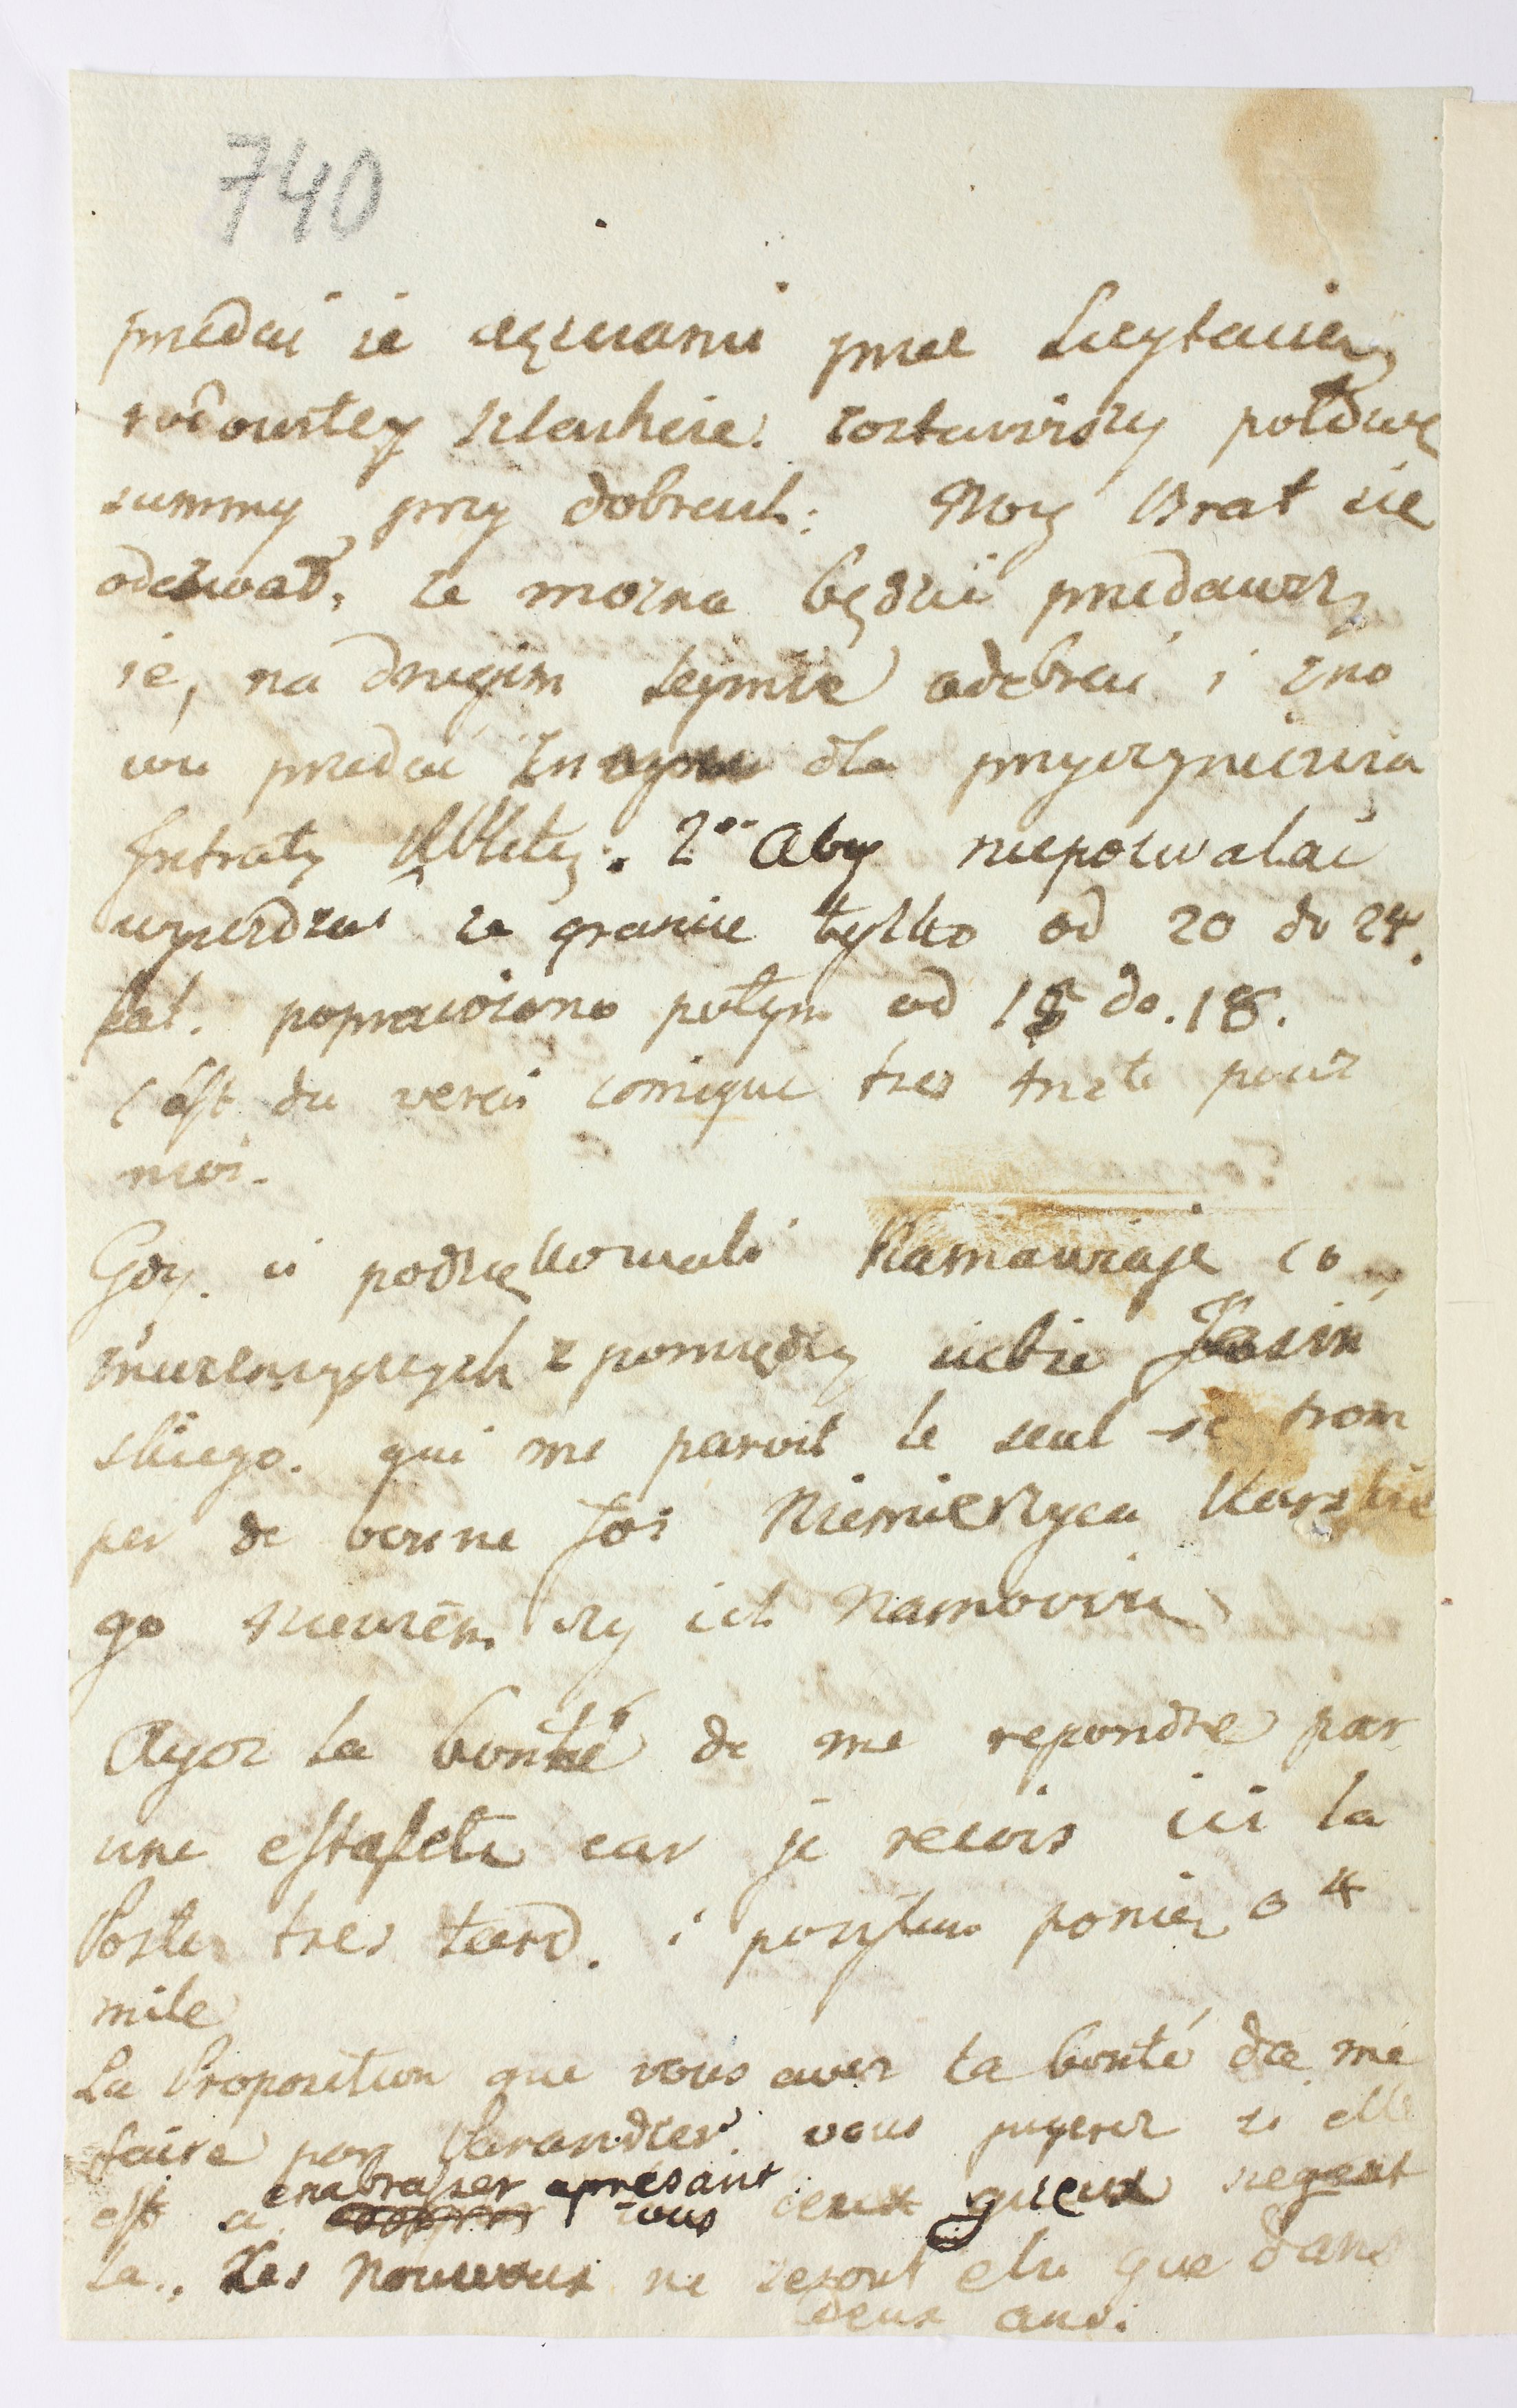 740
przedać ie przez Licytacią
rodowitey Szlachcie. zostawiwszy połowę
summy przy dobrach: Moy Brat sie
odezwał, ze mozna będzie przedawszy
ie, na drugim Seymie odebrać i zno
wu przedać dla przyczynienia
Intraty 2do Aby niepozwalać
wyiezdzać za granice tylko od 20 do 24.
lat. poprawiono potym od 18 do. 18.
c'est du vrai comique tres triste pour
moi.
Gdy ci podziękowali Namawiaią co
z pomiędzy siebie Jasin
skiego. qui me paroit le seul se trom
per de bonne foi Niemierzyca Karskie
go niewiem czy ich namowią
Ayez la bonté de me repondre par
une estafette car je recois ici la
Poste tres tard. i posyłam ponią o 4
mile
La Proposition que vous avez la bonté de me
faire par Varandier. vous jugerez si elle
est a embrasser apresant tous ceux gueux
la., Les Nouveaux ne seront elu que dans
deux ans.